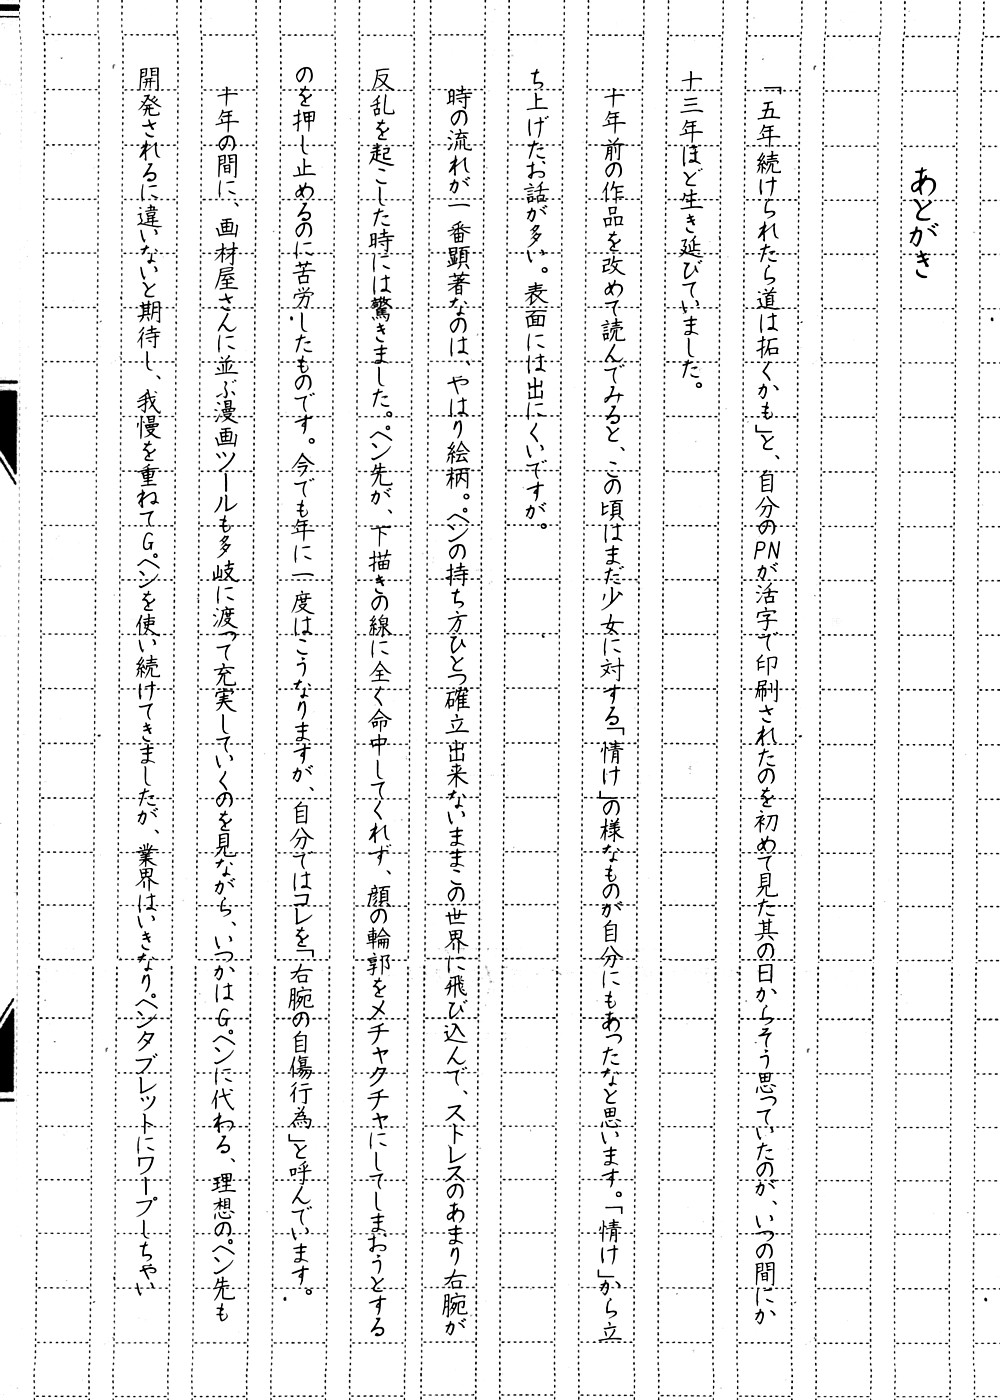 あとがき
「五年続けられたら道は拓くかも」と、自分のPNが活字で印刷されたのを初めて見た其の日からそう思っていたのが、いつの間にか
十三年ほど生き延びていました。
十年前の作品を改めて読んでみると、この頃はまだ少女に対する「情け」の様なものが自分にもあったなと思います。「情け」から立
ち上げたお話が多い。表面には出にくいですが。
時の流れが一番顕著なのは、やはり絵柄。ペンの持ち方ひとつ確立出来ないままこの世界に飛び込んで、ストレスのあまり右腕が
反乱を起こした時には驚きました。ペン先が、下描きの線に全く命中してくれず、顔の輪郭をメチャクチャにしてしまおうとする
のを押し止めるのに苦労したものです。今でも年に一度はこうなりますが、自分ではコレを「右腕の自傷行為」と呼んでいます。
十年の間に、画材屋さんに並ぶ漫画ツールも多岐に渡って充実していくのを見ながら、いつかはGペンに代わる、理想のペン先も
開発されるに違いないと期待し、我慢を重ねてGペンを使い続けてきましたが、業界はいきなりペンタブレットにワープしちゃい